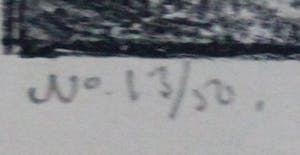 No. 13/50.